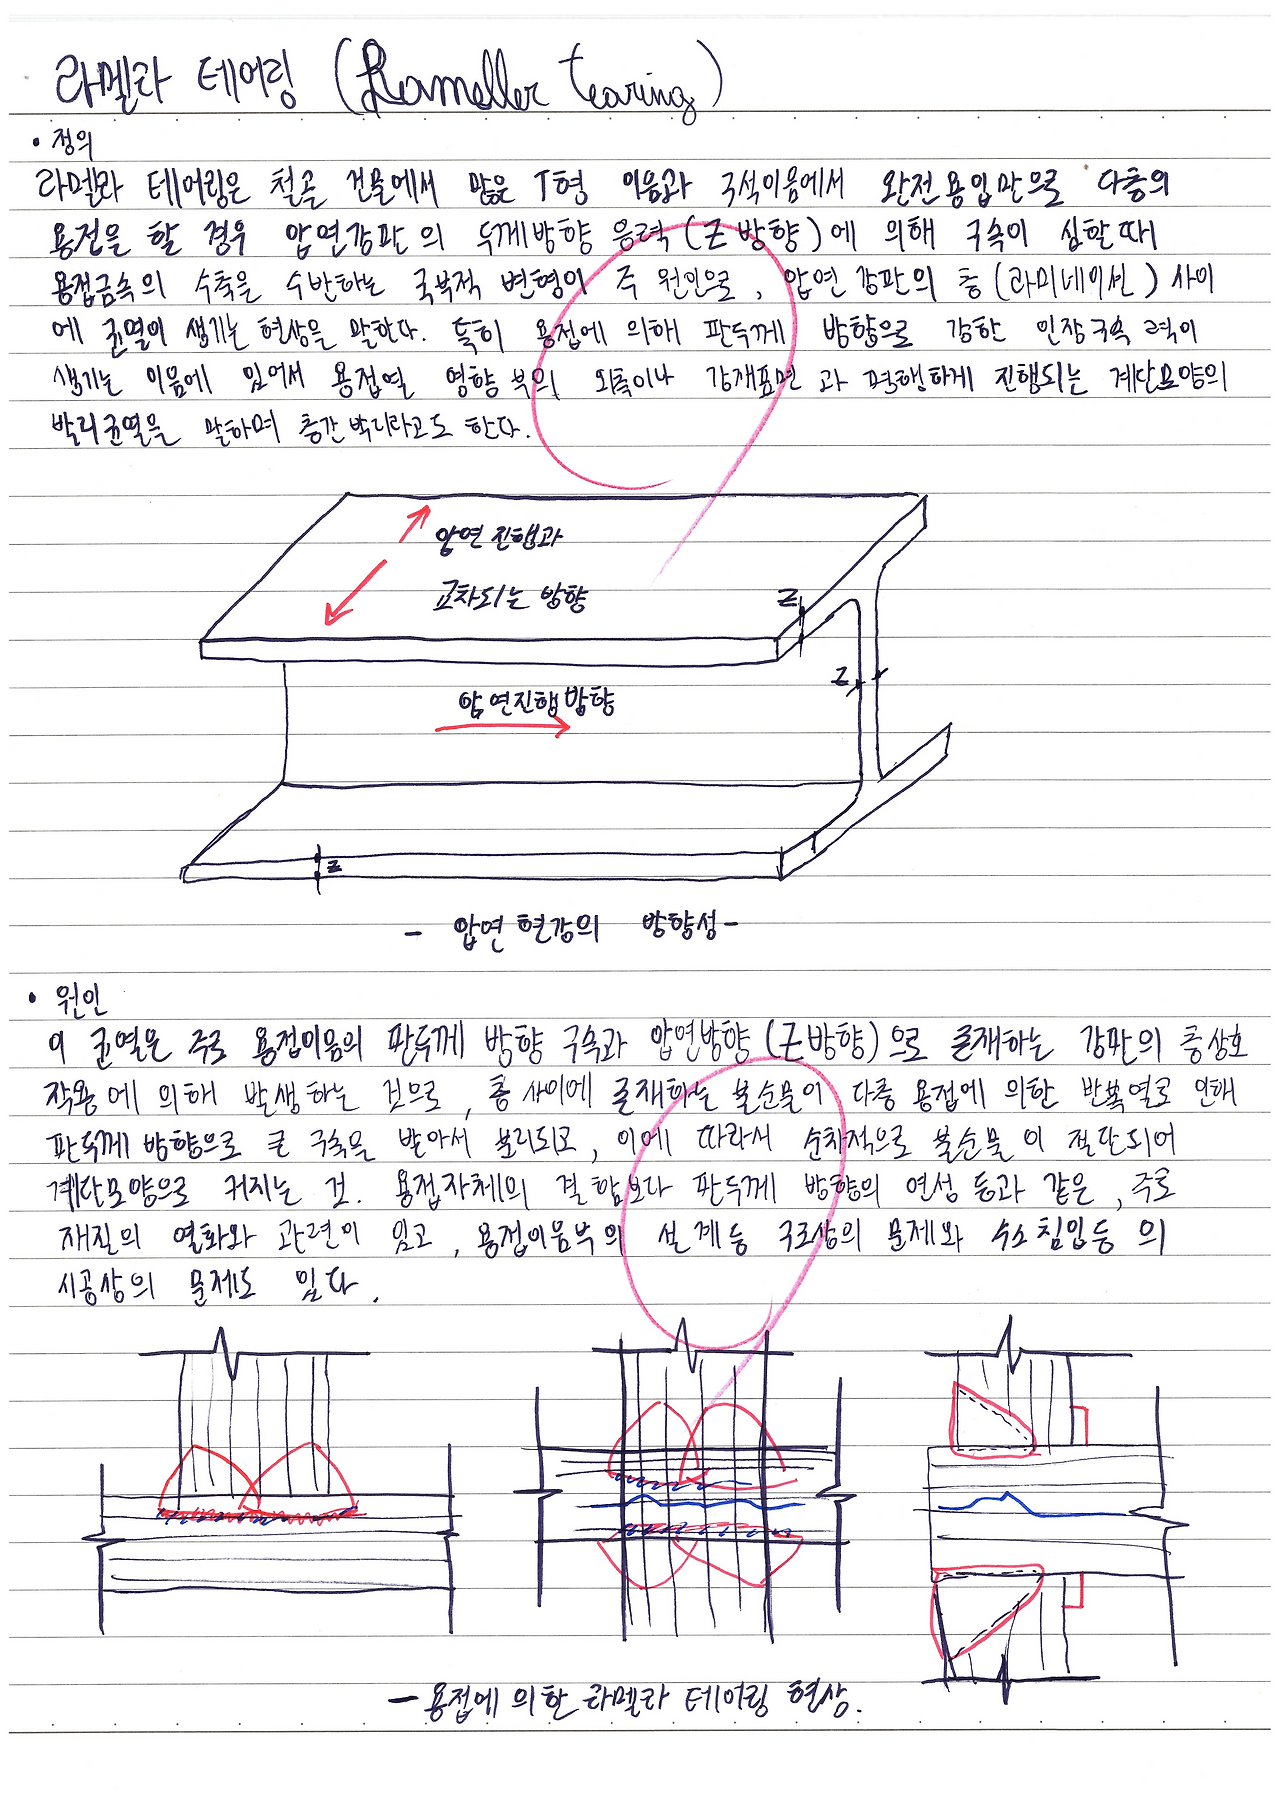 라멜라 테어링 (Lameller tearing)
• 정의
라멜라 테어링은 철골 건물에서 많은 T형 이음과 구석이음에서 완전용입만으로 다층의
용접을 할 경우 압연강판의 두께방향 응력(Z방향)에 의해 구속이 심할때
용접금속의 수축을 수반하는 국부적 변형이 주 원인으로, 압연강판의 층(라미네이션) 사이
에 균열이 생기는 현상을 말한다. 특히 용접에 의해 판두께 방향으로 강한 인장구속력이
생기는 이음에 있어서 용접열 영향부의 외측이나 강재표면과 평행하게 진행되는 계단모양의
박리균열을 말하며 층간박리라고도 한다.
압연진행과
교차되는 방향
Z
Z
압연진행방향
Z
- 압연형강의 방향성 -
• 원인
이 균열은 주로 용접이음의 판두께 방향 구속과 압연방향(Z방향)으로 존재하는 강판의 층상호
작용에 의해 발생하는 것으로, 층 사이에 존재하는 불순물이 다층 용접에 의한 반복열로 인해
판두께 방향으로 큰 구속을 받아서 분리되고, 이에 따라서 순차적으로 불순물이 절단되어
계단모양으로 커지는 것. 용접자체의 결함보다 판두께 방향의 연성 등과 같은, 주로
재질의 열화와 관련이 있고, 용접이음부의 설계등 구조상의 문제와 수소침입등의
시공상의 문제도 있다.
- 용접에 의한 라멜라 테어링 현상.